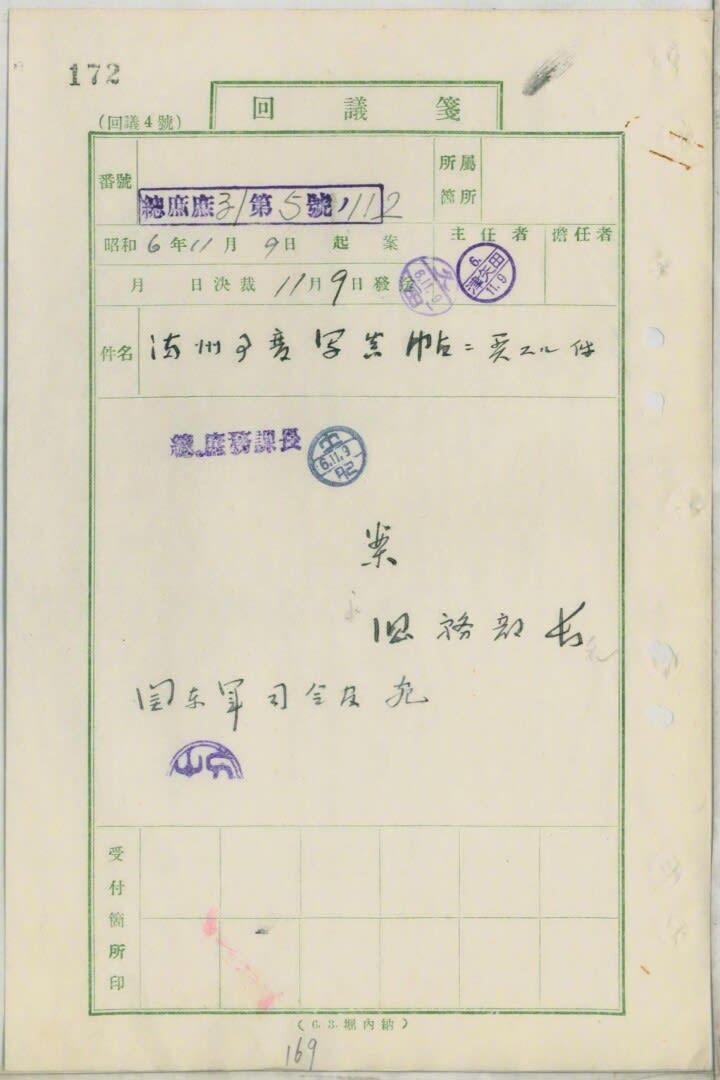 172
回議箋
(回議4號)
番號
總庶庶31第5號ノ112
所屬箇所
昭和6年11月9日起案
主任者
擔任者
月日決裁11月9日發送
6.11.9
津矢田
6.11.9
件名
満州事変写真帖ニ関スル件
總、庶務課長
6.11.9
案
総務部長
関東軍司令官宛
受付箇所印
(6.3.堀內納)
169